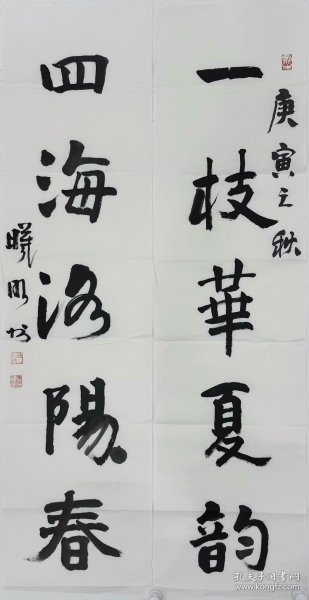 庚寅之秋
一枝華夏韵
四海洛陽春
書
孔夫子旧书网